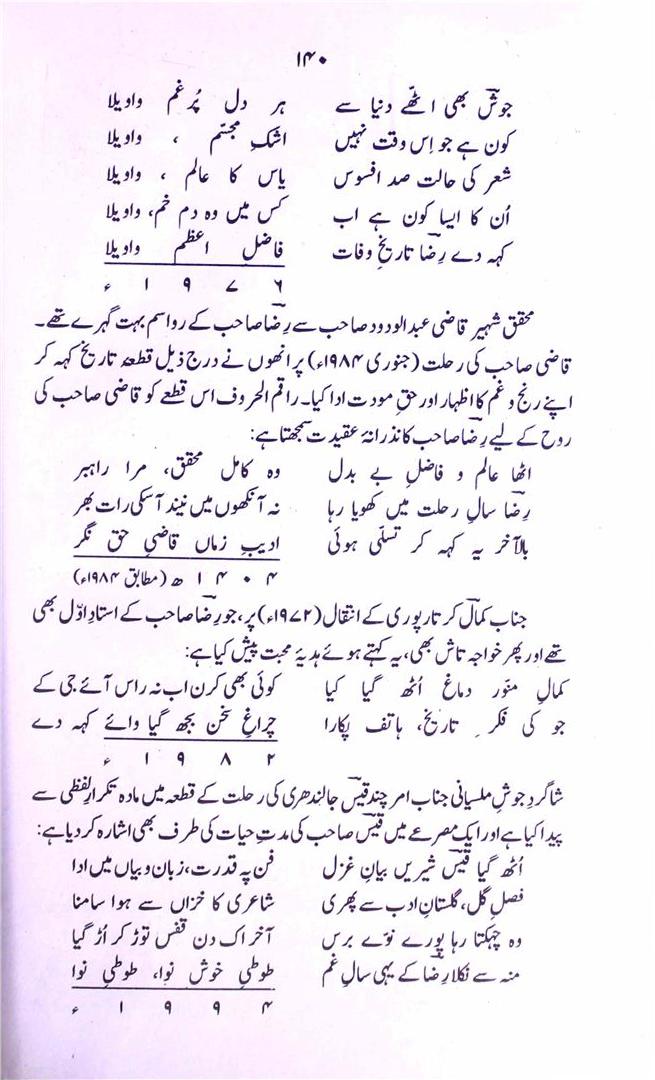 ۱۴۰
جوشؔ بھی اٹھے دنیا سے ہر دل پُر غم واویلا
کون ہے جو اِس وقت نہیں اشکِ مجسّم ، واویلا
شعر کی حالت صد افسوس یاس کا عالم ، واویلا
اُن کا ایسا کون ہے اب کس میں وہ دم خم، واویلا
کہہ دے رِضاؔ تاریخِ وفات فاضل اعظم واویلا
۱ ۹ ۷ ۶ ء
محقق شہیر قاضی عبدالودود صاحب سے رضاؔ صاحب کے رواسم بہت گہرے تھے۔
قاضی صاحب کی رحلت (جنوری ۱۹۸۴ء) پر انھوں نے درج ذیل قطعہ تاریخ کہہ کر
اپنے رنج و غم کا اظہار اور حقِ مودت ادا کیا۔ راقم الحروف اس قطعے کو قاضی صاحب کی
روح کے لیے رضاؔ صاحب کا نذرانۂ عقیدت سمجھتا ہے:
اٹھا عالم و فاضلِ بے بدل وہ کامل محقق، مرا راہبر
رِضاؔ سالِ رحلت میں کھویا رہا نہ آنکھوں میں نیند آسکی رات بھر
بالآخر یہ کہہ کر تسلّی ہوئی ادیبِ زماں قاضیِ حق نگر
۱ ۴ ۰ ۴ ھ (مطابق ۱۹۸۴ء)
جناب کمالؔ کرتارپوری کے انتقال (۱۹۷۲ء) پر، جو رضاؔ صاحب کے استادِ اوّل بھی
تھے اور پھر خواجہ تاش بھی، یہ کہتے ہوئے ہدیۂ محبت پیش کیا ہے:
کمالِ منوّر دماغ اُٹھ گیا کیا کوئی بھی کرن اب نہ راس آئے جی کے
جو کی فکر ِ تاریخ، ہاتف پکارا چراغِ سخن بجھ گیا وائے کہہ دے
۱ ۹ ۸ ۲ ء
شاگردِ جوشؔ ملسیانی جناب امر چند قیسؔ جالندھری کی رحلت کے قطعہ میں مادہ تکرارِ لفظی سے
پیدا کیا ہے اور ایک مصرعے میں قیسؔ صاحب کی مدتِ حیات کی طرف بھی اشارہ کر دیا ہے:
اُٹھ گیا قیسؔ شیریں بیانِ غزل فن پہ قدرت، زبان و بیاں میں ادا
فصلِ گل، گلستانِ ادب سے پھری شاعری کا خزاں سے ہوا سامنا
وہ چہکتا رہا پورے نوّے برس آخر اک دن قفس توڑ کر اُڑ گیا
منہ سے نکلا رضاؔ کے یہی سالِ غم طوطیِ خوش نوا، طوطیِ نوا
۱ ۹ ۹ ۴ ء